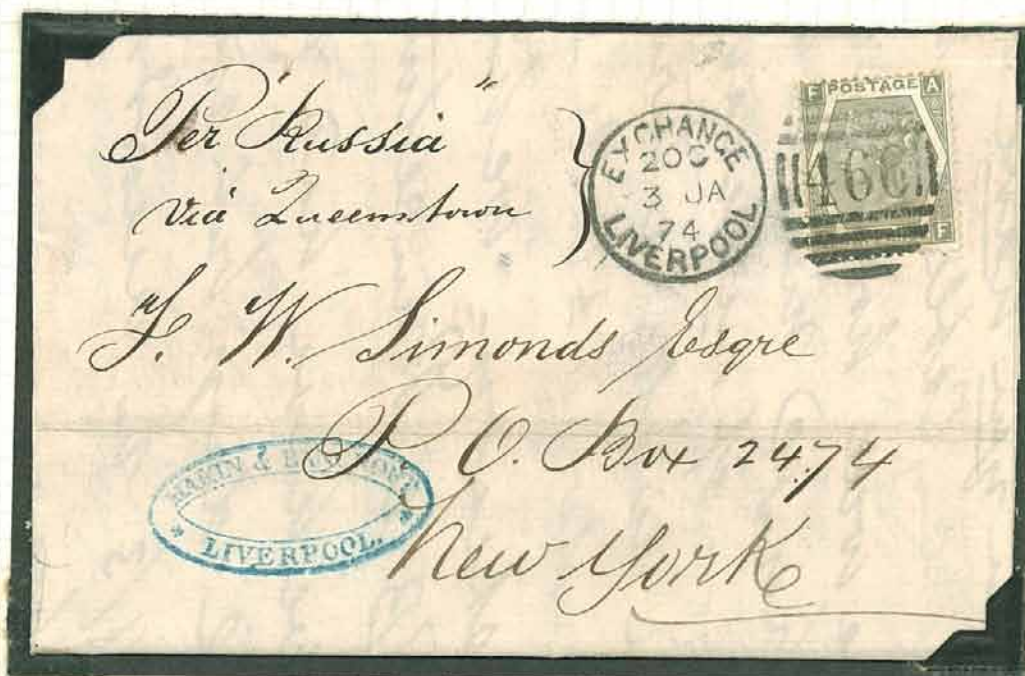 Per "Russia"
via Queenstown
EXCHANGE
20C
3 JA
74
LIVERPOOL
F POSTAGE A
466
F
F. W. Simonds Esqre
P. O. Box 2474
New York
& 
LIVERPOOL.